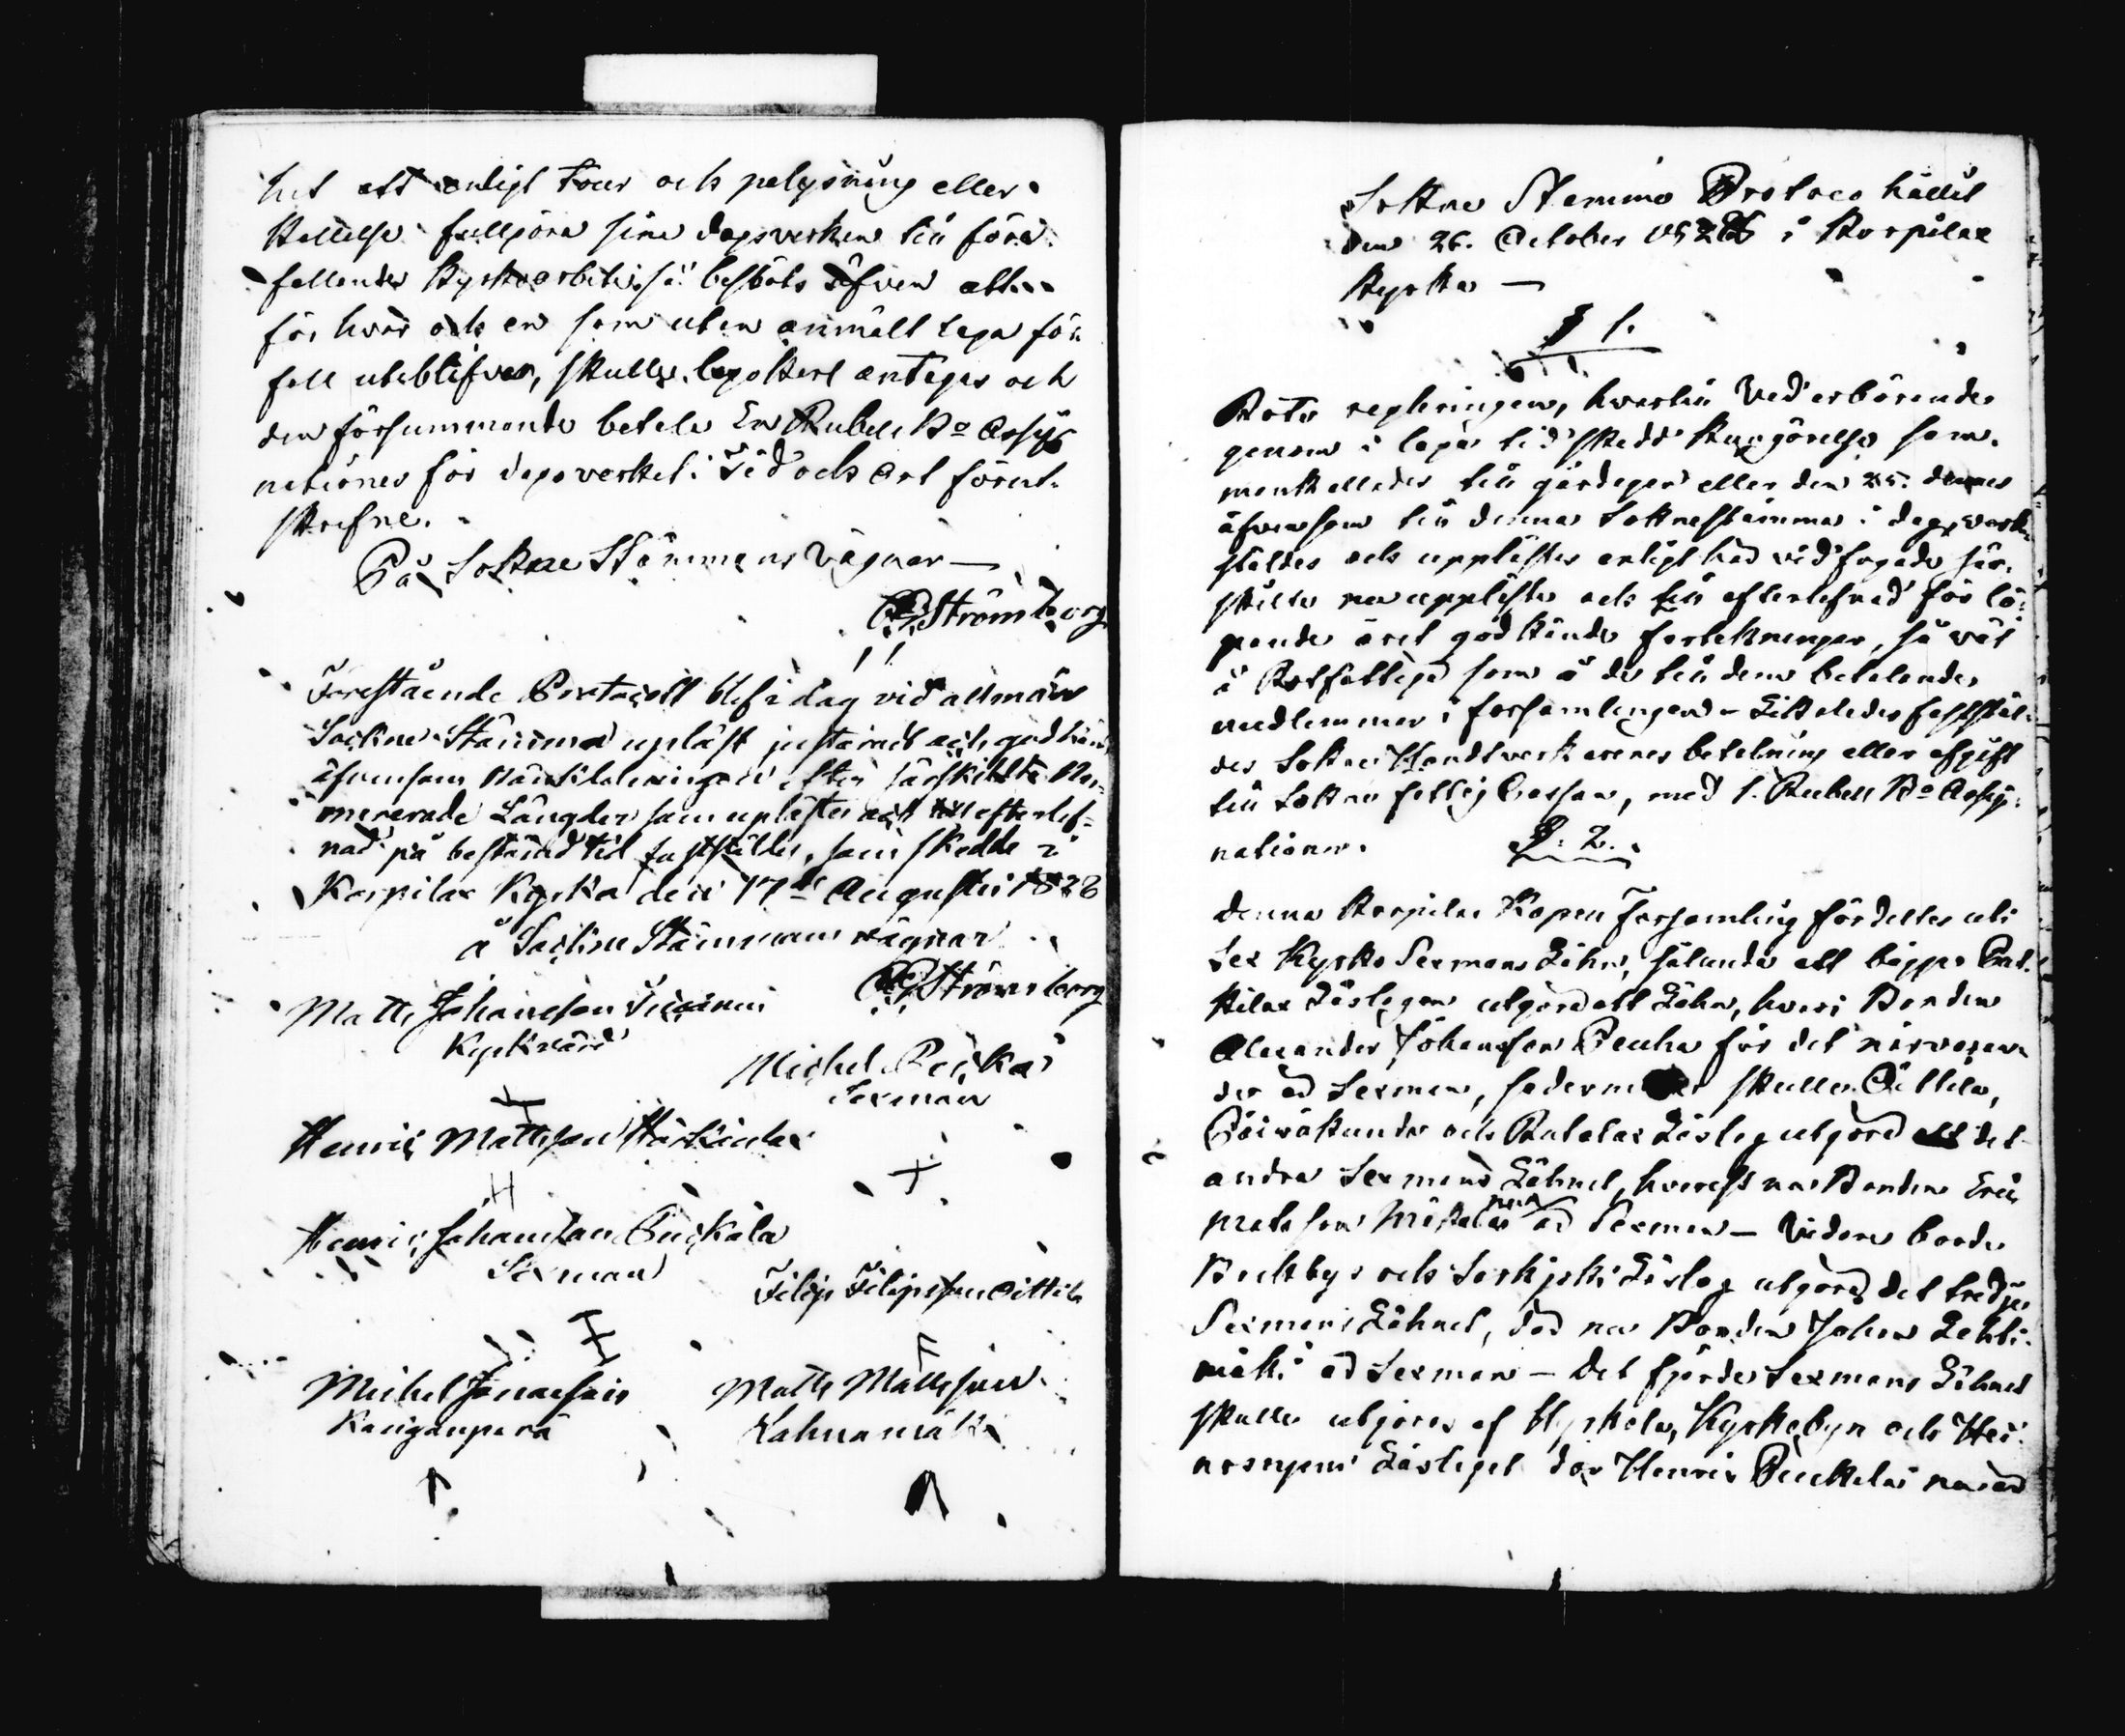 het att enligt tour och palysning eller
Kallelse fullgöra sine dagsverken till före-
fallande Kyrkoarbeten, så beslöts äfven att
för hvar och en som utan anmält laga för-
fall uteblifver, skulle legokarl antagas och
den försummande betala En Rubel Bo Assig
nationer för dagsverket. Tid och Ort förut-
skrefne.
På Sokne Stämmans Vägnar —
Strömborg
Forestående Protocoll blef i dag vid allmän
Sockne Stämma upläst justerat och godkänt
äfvensom efter särskildte Nu-
mererade Längder som uplästes och till efterlef-
nad på bestämd tid fastställdes, som skedde i
Korpilax Kyrka den 17de Augusti 1828
å Sockne Stämmans vägnar
Strömborg
Matts Johansson
Kyrkvärd
Michel
Sexman
Henric Mattsson Härkälax
Henric Johansson Puckala
Sexman
Filip Filipsson Oittila
Michel Jonasson
Kanganperä
Matts Mattsson
Kahunamäki
Sokne Stemmo Protoco hållit
den 26. October 1828 i Korpilax
Kyrka —
§ 1.
Rote regleringen, hvartill Vederbörande
genom i laga tid skedd Kungörelse sam-
mankallades till gårdagen eller den 25. dennes
äfvensom till denna Soknestämma i dag, verk-
stäldes och upplästes enligt här vidfogade sär-
skilte nu uppläste och till efterlefnad för lö-
pande året godkände fortekninger, så väl
å Rotfattige som å de till dem betalande
medlemmer i forsamlingen — Likaledes faststäl-
des Sokne Handtverkarenes betalning eller afgift
till Sokne fattig Cassan, med 1. Rubell Bo Assig-
nationer.
§. 2.
denna Korpilax Kapell Forsamling fördeltes uti
sex Kyrko Sexmans Lähn, sålunda att bägge Put-
kilax Läslagen utgöra ett Lähn, hvari Bonden
Alexander Johansson Penha för det närvaran-
de är Sexman, sedermera skulle Oittila,
Päiväkunda och Rutalax Läslag utgöra det
andra Sexmans Lähnet, hvarest nu Bonden Eric
Matsson nu är Sexman — Vidare borde
Buckbys och Sarkjoki Läslag utgöra det tredje
Sexmans Lähnet, där nu Bonden Johan Lehti-
mäki är Sexman — Det fjärde Sexmans Lähnet
skulle utgöres af Hyrkäla, Kyrkobyn och Hei-
nosnyemi Läslaget där Henric Puckala nu är